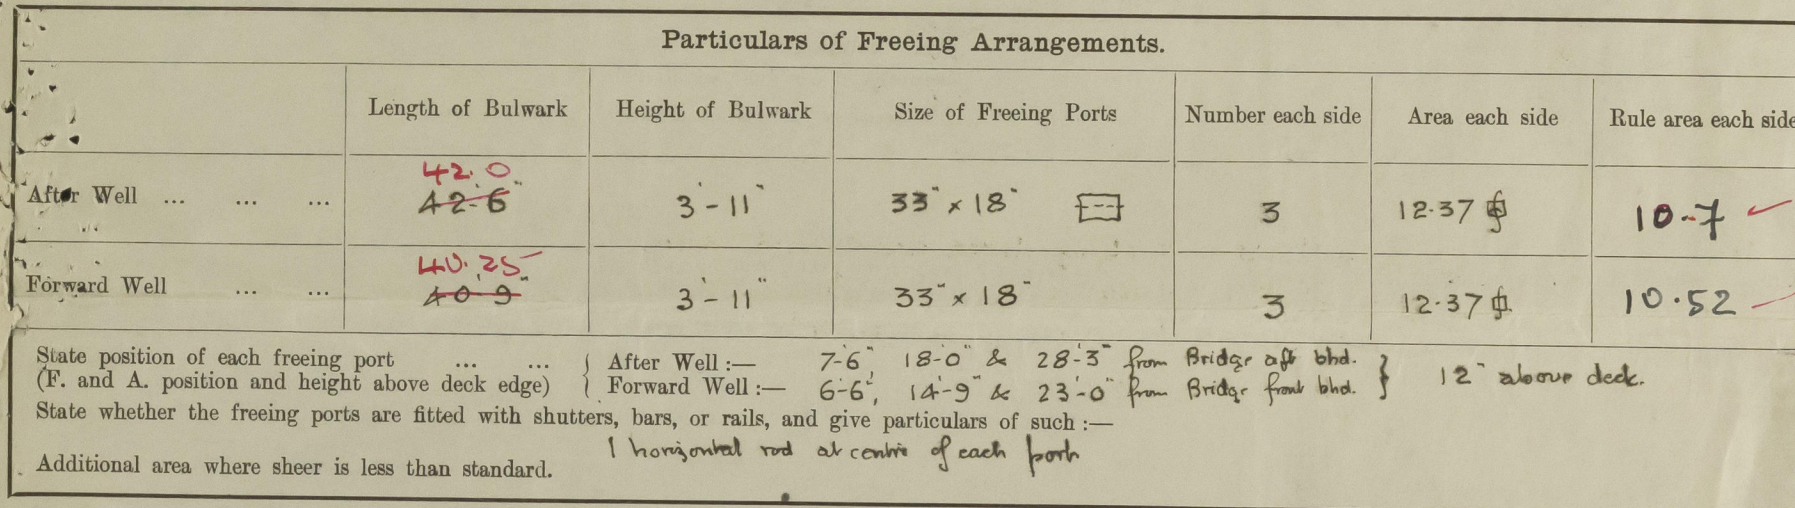 Particulars of Freeing Arrangements.
Length of Bulwark Height of Bulwark Size of Freeing Ports Number each side Area each side Rule area each side
42.0
After Well ... ... ... 42'-6" 3'-11" 33" x 18" 3 12.37 10.7
40.25
Forward Well ... ... 40'-9" 3'-11" 33" x 18" 3 12.37 10.52
State position of each freeing port ... ... { After Well :— 7'-6", 18'-0" & 28'-3" from Bridge aft bhd. }
(F. and A. position and height above deck edge) { Forward Well :— 6'-6", 14'-9" & 23'-0" from Bridge front bhd. } 12" above deck.
State whether the freeing ports are fitted with shutters, bars, or rails, and give particulars of such :—
1 horizontal rod at centre of each port
Additional area where sheer is less than standard.